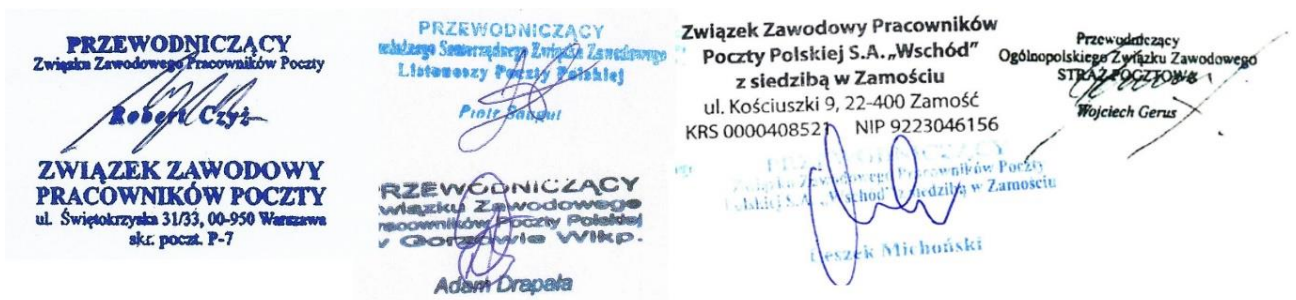 PRZEWODNICZĄCY
Związku Zawodowego Pracowników Poczty
Robert Czyż
ZWIĄZEK ZAWODOWY
PRACOWNIKÓW POCZTY
ul. Świętokrzyska 31/33, 00-950 Warszawa
skr. poczt. P-7
PRZEWODNICZĄCY
Związku Zawodowego
Listonoszy Poczty Polskiej
Piotr
RZEWODNICZĄCY
Związku Zawodowego
racowników Poczty Polskiej
w Gorzowie Wlkp.
Adam Drapała
Związek Zawodowy Pracowników
Poczty Polskiej S.A. „Wschód”
z siedzibą w Zamościu
ul. Kościuszki 9, 22-400 Zamość
KRS 0000408521 NIP 9223046156
PRZEWODNICZĄCY
Związku Zawodowego Pracowników Poczty
Polskiej S.A. „Wschód” z siedzibą w Zamościu
Leszek Michoński
Przewodniczący
Ogólnopolskiego Związku Zawodowego
STRAŻ POCZTOWA
Wojciech Gerus